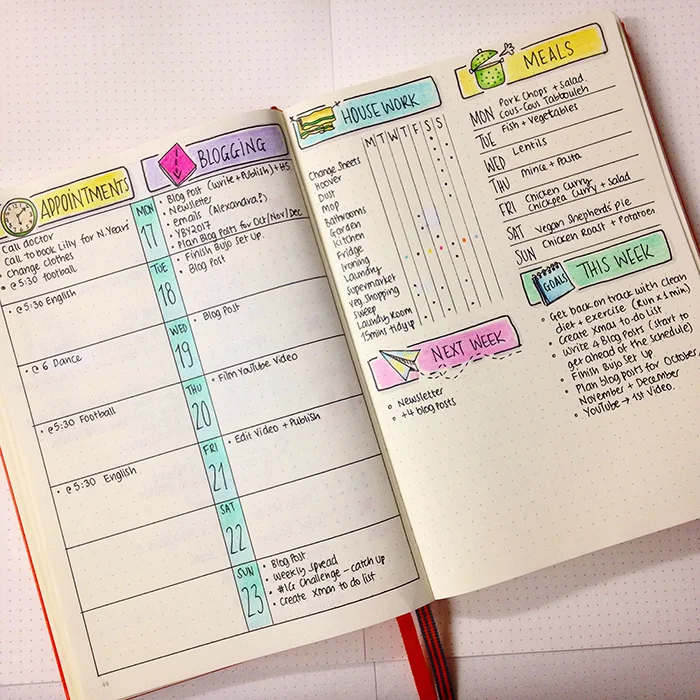 APPOINTMENTS
Call doctor
Call to book Lilly for N.Years
• Change clothes
• @ 5:30 football
• @ 5:30 English
• @ 6 Dance
• @ 5:30 Football
• @ 5:30 English
MON
17
TUE
18
WED
19
THU
20
FRI
21
SAT
22
SUN
23
BLOGGING
Blog Post (write + Publish) + HS.
• Newsletter
• emails (Alexandra?)
• YBY2017
• Plan Blog Posts for Oct/Nov/Dec
Finish Bujo Set Up.
• Blog Post
• Blog Post
• Film YouTube Video
• Edit Video + Publish
• Blog Post
• Weekly spread
• #IG Challenge - catch up
• Create Xmas to do list
HOUSEWORK
M T W T F S S
Change Sheets
Hoover
Dust
Mop
Bathrooms
Garden
Kitchen
Fridge
Ironing
Laundry
Supermarket
Veg shopping
Sweep
Laundry Room
15mins tidy up
NEXT WEEK
Newsletter
+4 blog posts
MEALS
MON Pork Chops + Salad.
Cous-Cous Tabbouleh
TUE Fish + Vegetables
WED Lentils
THU Mince + Pasta
FRI Chicken Curry
Chickpea Curry + Salad
SAT Vegan Shepherd's Pie
SUN Chicken Roast + Potatoes
GOALS
THIS WEEK
Get back on track with clean
diet + exercise (Run x 1 min)
Create Xmas to do List
Write 4 Blog Posts (start to
get ahead of the schedule)
Finish Bujo Set Up
Plan blog posts for October,
November + December
YouTube → 1st Video.